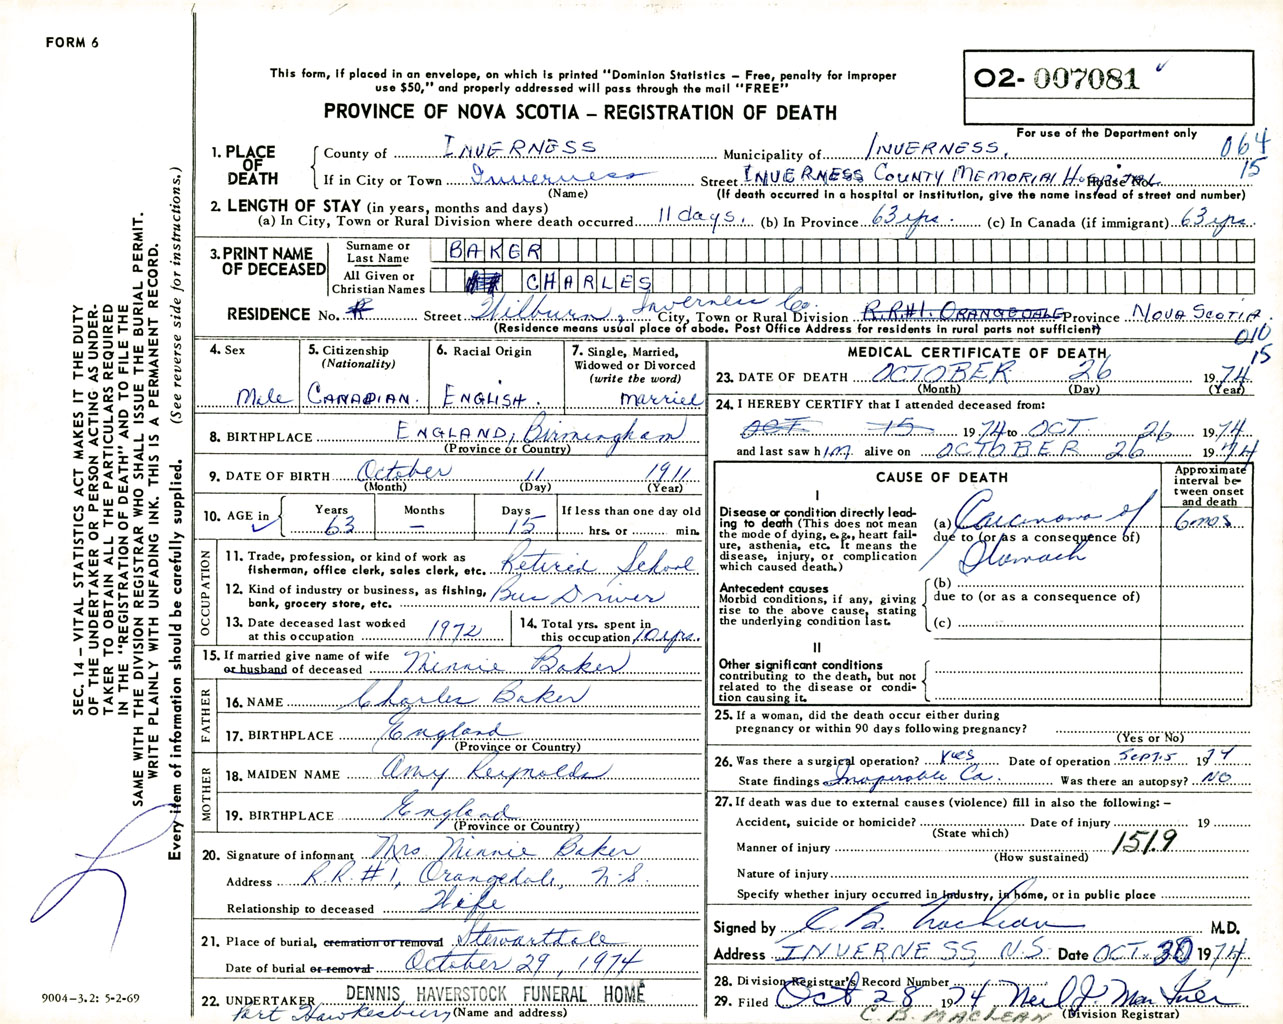 FORM 6
This form, if placed in an envelope, on which is printed "Dominion Statistics – Free, penalty for improper
use $50," and properly addressed will pass through the mail "FREE"
O2-007081
PROVINCE OF NOVA SCOTIA – REGISTRATION OF DEATH
For use of the Department only
064
15
1. PLACE OF DEATH County of INVERNESS Municipality of INVERNESS,
If in City or Town Inverness Street INVERNESS COUNTY MEMORIAL HOSPITAL House No.
(Name) (If death occurred in a hospital or institution, give the name instead of street and number)
2. LENGTH OF STAY (in years, months and days)
(a) In City, Town or Rural Division where death occurred 11 days. (b) In Province 63 yrs. (c) In Canada (if immigrant) 63 yrs.
3. PRINT NAME OF DECEASED Surname or Last Name BAKER
All Given or Christian Names CHARLES
RESIDENCE No. Street Wilburn, Inverness Co. City, Town or Rural Division R.R.#1. ORANGEDALE Province NOVA SCOTIA
(Residence means usual place of abode. Post Office Address for residents in rural parts not sufficient)
010
15
4. Sex 5. Citizenship (Nationality) 6. Racial Origin 7. Single, Married, Widowed or Divorced (write the word)
Male CANADIAN. ENGLISH. married
8. BIRTHPLACE ENGLAND, Birmingham
(Province or Country)
9. DATE OF BIRTH October 11 1911
(Month) (Day) (Year)
10. AGE in Years Months Days If less than one day old
63 – 15 hrs. or min.
OCCUPATION
11. Trade, profession, or kind of work as
fisherman, office clerk, sales clerk, etc. Retired School
12. Kind of industry or business, as fishing,
bank, grocery store, etc. Bus Driver
13. Date deceased last worked
at this occupation 1972
14. Total yrs. spent in
this occupation 10 yrs.
15. If married give name of wife
or husband of deceased Minnie Baker
FATHER
16. NAME Charles Baker
17. BIRTHPLACE England
(Province or Country)
MOTHER
18. MAIDEN NAME Amy Reynolds
19. BIRTHPLACE England
(Province or Country)
20. Signature of informant Mrs Minnie Baker
Address R.R.#1, Orangedale, N.S.
Relationship to deceased Wife
21. Place of burial, cremation or removal Stewartdale
Date of burial or removal October 29, 1974
22. UNDERTAKER DENNIS HAVERSTOCK FUNERAL HOME
Port Hawkesbury (Name and address)
MEDICAL CERTIFICATE OF DEATH
23. DATE OF DEATH OCTOBER 26 1974
(Month) (Day) (Year)
24. I HEREBY CERTIFY that I attended deceased from:
OCT 15 1974 to OCT. 26 1974
and last saw him alive on OCTOBER 26 1974
CAUSE OF DEATH
Approximate interval between onset and death
I
Disease or condition directly leading to death (This does not mean the mode of dying, e.g., heart failure, asthenia, etc. It means the disease, injury, or complication which caused death.)
(a) Carcinoma of 6 mos
due to (or as a consequence of)
Stomach
Antecedent causes
Morbid conditions, if any, giving rise to the above cause, stating the underlying condition last.
(b)
due to (or as a consequence of)
(c)
II
Other significant conditions
contributing to the death, but not
related to the disease or condition causing it.
25. If a woman, did the death occur either during
pregnancy or within 90 days following pregnancy?
(Yes or No)
26. Was there a surgical operation? yes Date of operation SEPT. 5 1974
State findings Inoperable Ca. Was there an autopsy? NO
27. If death was due to external causes (violence) fill in also the following: –
Accident, suicide or homicide? Date of injury 19
(State which)
Manner of injury 151.9
(How sustained)
Nature of injury
Specify whether injury occurred in industry, in home, or in public place
Signed by C. B. MacLean M.D.
Address INVERNESS N.S. Date OCT. 30 1974
28. Division Registrar's Record Number
29. Filed Oct 28 1974 Neil J. MacIver
C. B. MACLEAN (Division Registrar)
SEC. 14 – VITAL STATISTICS ACT MAKES IT THE DUTY
OF THE UNDERTAKER OR PERSON ACTING AS UNDER-
TAKER TO OBTAIN ALL THE PARTICULARS REQUIRED
IN THE "REGISTRATION OF DEATH" AND TO FILE THE
SAME WITH THE DIVISION REGISTRAR WHO SHALL ISSUE THE BURIAL PERMIT.
WRITE PLAINLY WITH UNFADING INK. THIS IS A PERMANENT RECORD.
Every item of information should be carefully supplied. (See reverse side for instructions.)
9004-3.2: 5-2-69